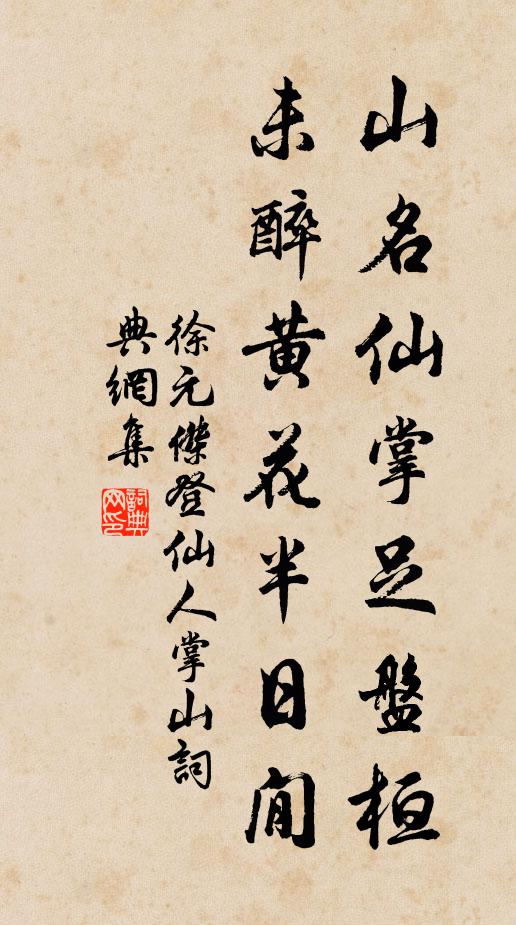 山名仙掌足盤桓
未醉黃花半日閒
徐元傑登仙人掌山詞
典網集
詞典網印